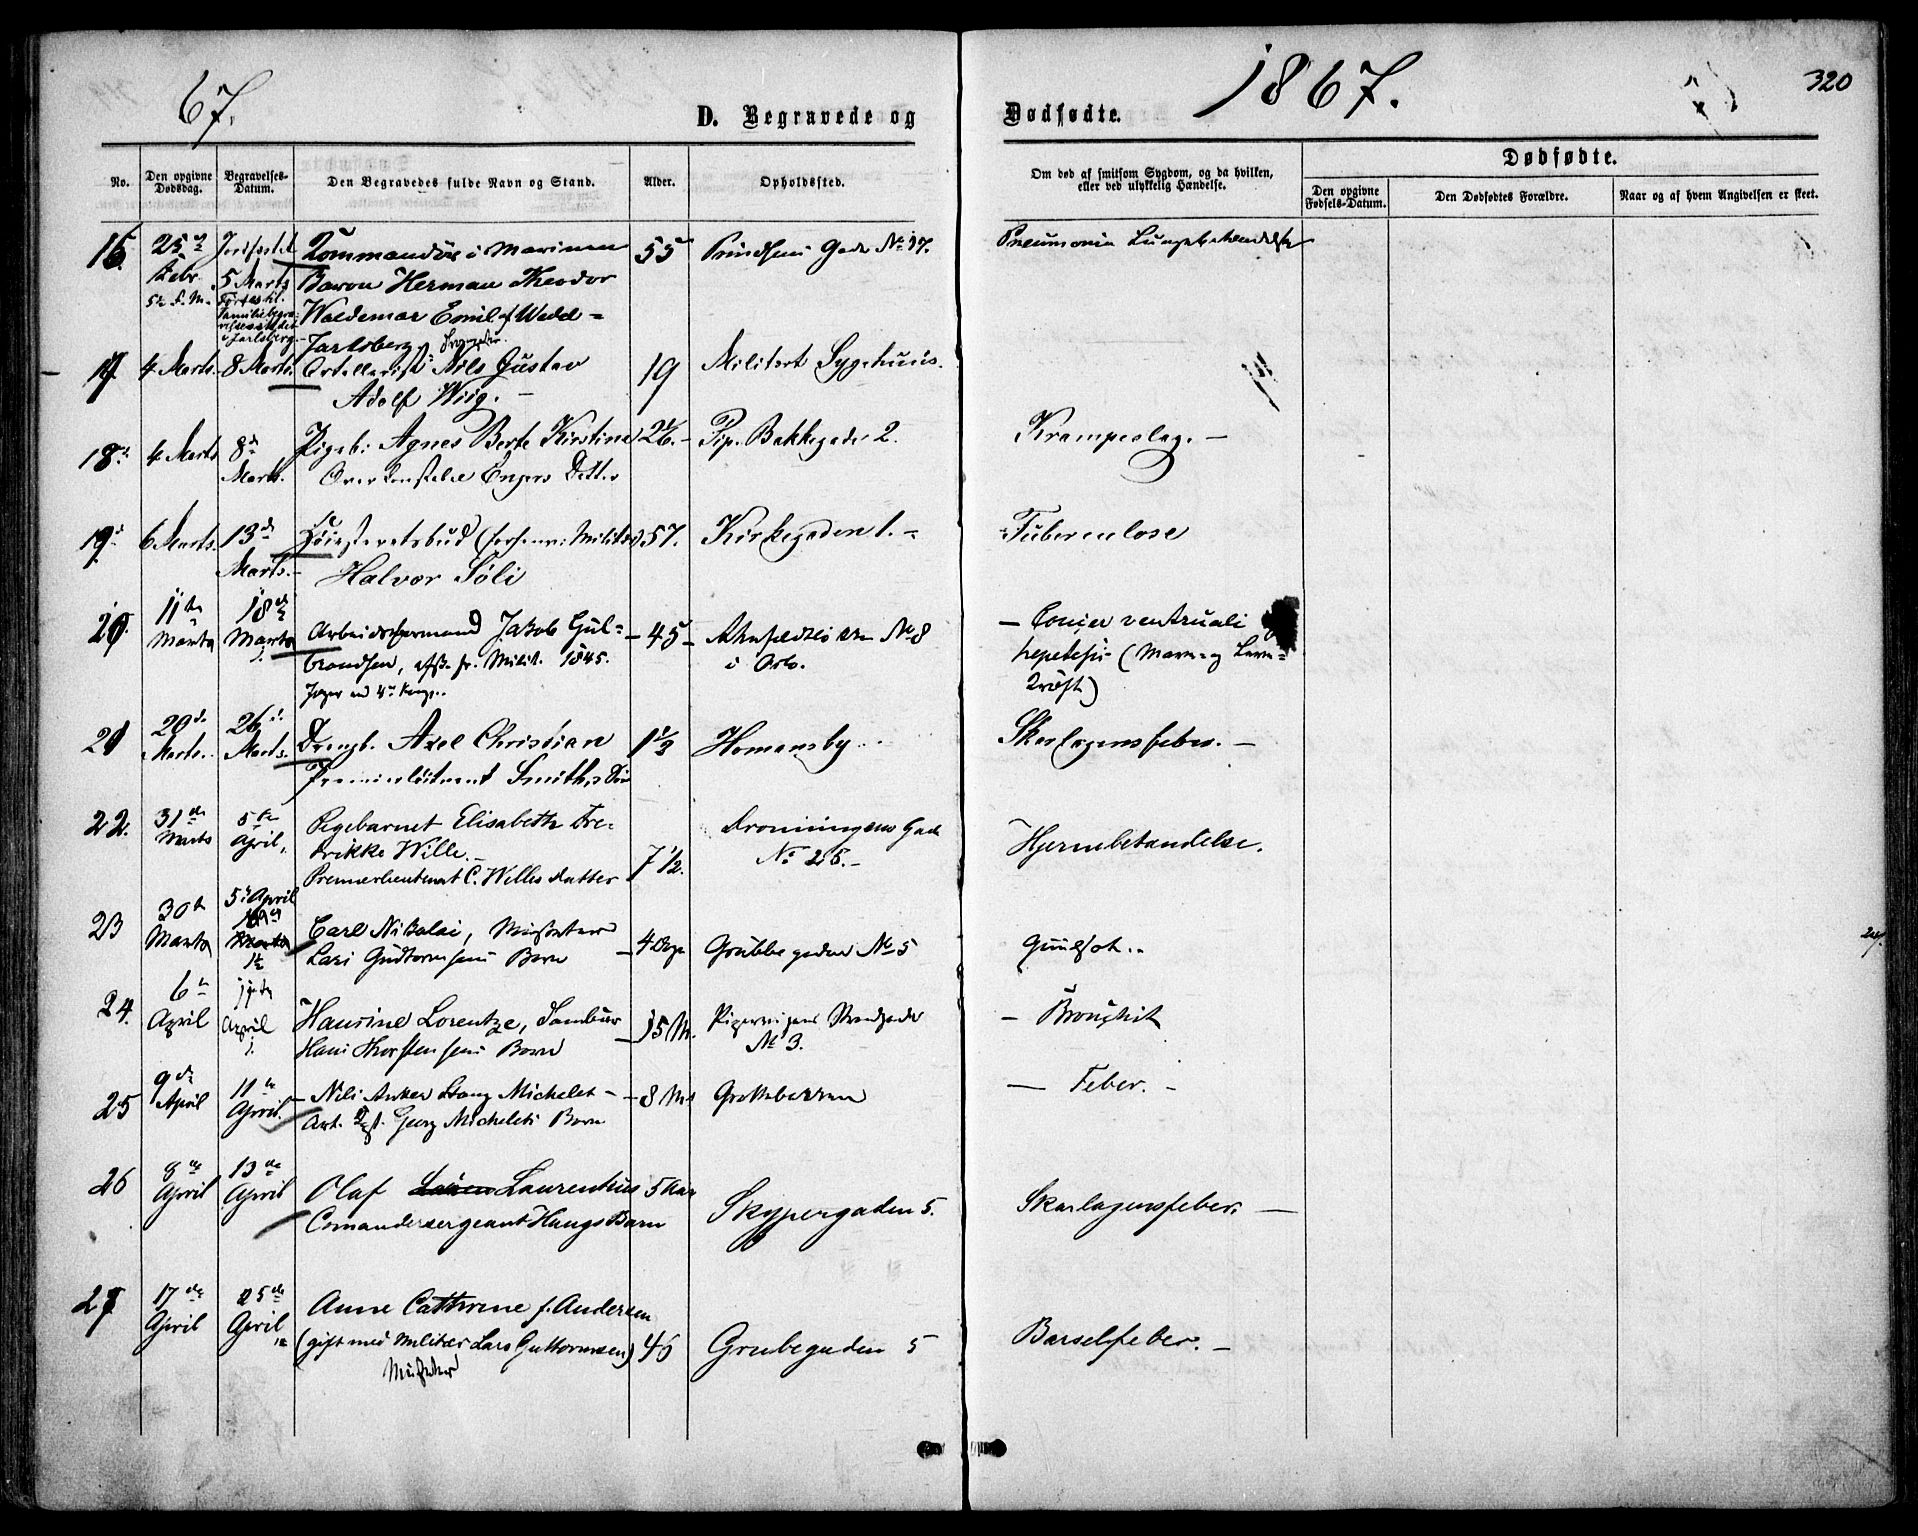 67.
1867.
320
D. Begravede og
Dødfødte.
No.
Den opgivne Dødsdag.
Begravelses-Datum.
Den Begravedes fulde Navn og Stand.
Alder.
Opholdssted.
Om død af smitsom Sygdom, og da hvilken, eller ved ulykkelig Hændelse.
Dødfødte.
Den opgivne Fødsels-Datum.
Den Dødfødtes Forældre.
Naar og af hvem Angivelsen er skeet.
16.
25
Febr.
Jordfæstet
5 Marts
Førtes til
Familiebegra-
velsesstedet
i Jarlsberg.
Kommandör i Marinen
Baron Herman Theodor
Waldemar Emil af Wedel-
Jarlsberg
55
Prindsens Gade No 17.
Pneumonia Lungebetændelse
17
4 Marts.
8 Marts.
Artillerist Nils Gustav
Adolf Wiig. -
19
Militært Sygehuus.
18
4 Marts
8de
Marts.
Pigeb: Agnes Berte Kirstine
Overkonstabel Engers Datter
Pip. Bakkegaden 2.
Krampeslag. -
19
6 Marts.
13de
Marts.
Høiesteretsbud (forhenv: Militær)
Halvor Søli
57.
Kirkegaden 1. -
Tuberculose
20.
11te
Marts
18de
Marts
Arbeidsformand Jakob Gul-
brandsen, afsk. fr. Milit. 1845.
45
No 8
i Oslo.
hepatis (Mave- og Lever-
Kræft)
21
20de
Marts.
26de
Marts.
Drengb. Axel Christian
Premierløitnant Smiths Søn
1 1/2
Homansby
Skarlagensfeber. -
22.
31de
Marts
5te
April.
Pigebarnet Elisabeth Fre-
drikke Wille. -
Premierlieutenant C. Willes Datter
7 1/2.
Dronningens Gade
No 26. -
Hjernebetændelse.
23
30te
Marts
5te April
Carl Nikolai, Musketeer
Lars Guttormsens Barn
4 Dage
Grubbegaden No 5
Guulsot.
24.
6te
April
April
Hansine Lorentze, Tambur
Hans Thorstensens Barn
15 M.
Pipervigens Strandgade
No 3.
- Bronchit
25
9de
April
11te
April.
- Nils Anker Stang Michelet -
Art. Georg Michelets Barn
8 Md
Grottebakken
- Feber. -
26
8de
April
13de
April
Olaf Laurentius
Comandersergeant Haugs Barn
5 Aar
Skippergaden 5.
Skarlagensfeber. -
27
17de
April
25de
April
Anne Cathrine f. Andersen
(gift med Militær Lars Guttormsen)
Musketeer
46
Grubegaden 5
Barselfeber. -